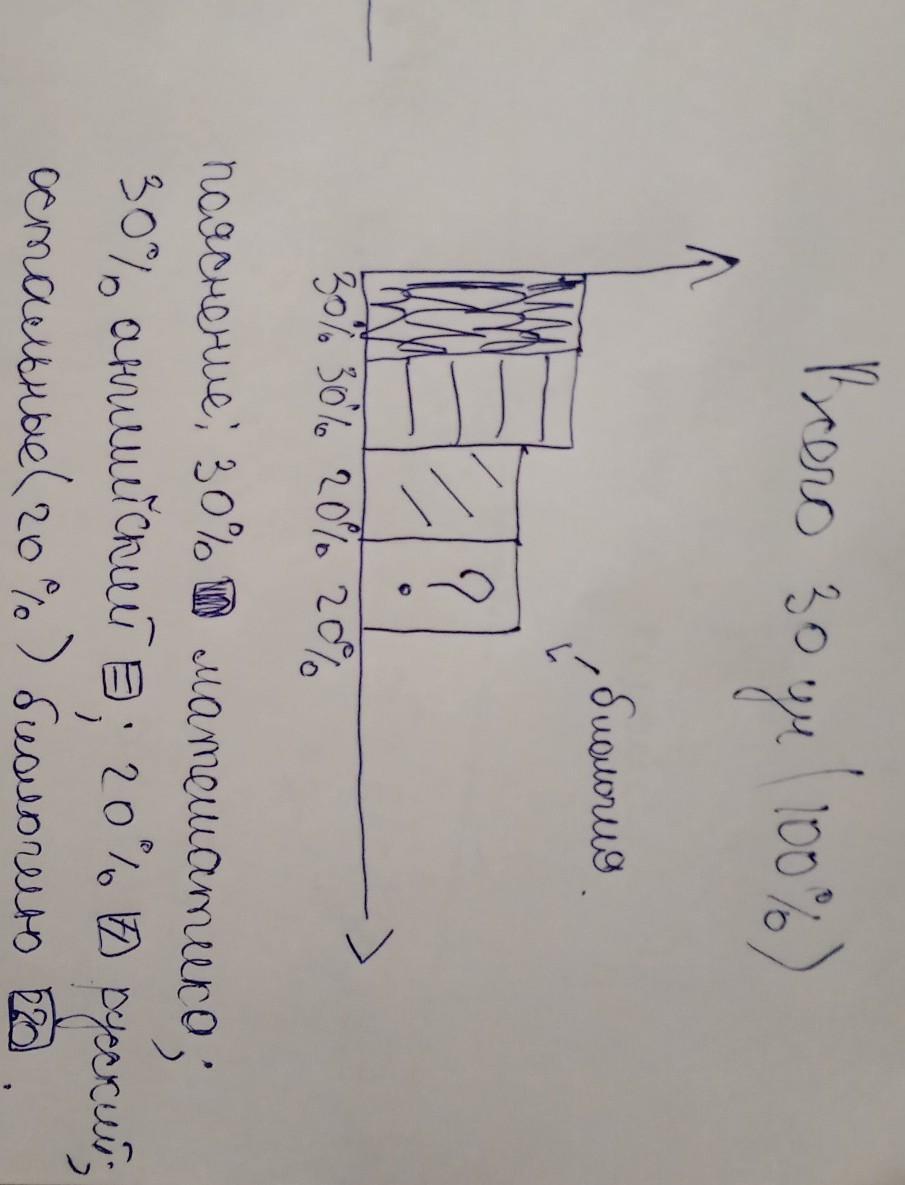 Всего 30 уч (100%)
биология.
?
30% 30% 20% 20%
пояснение; 30% математика;
30% английский; 20% русский;
остальные (20%) биологию.